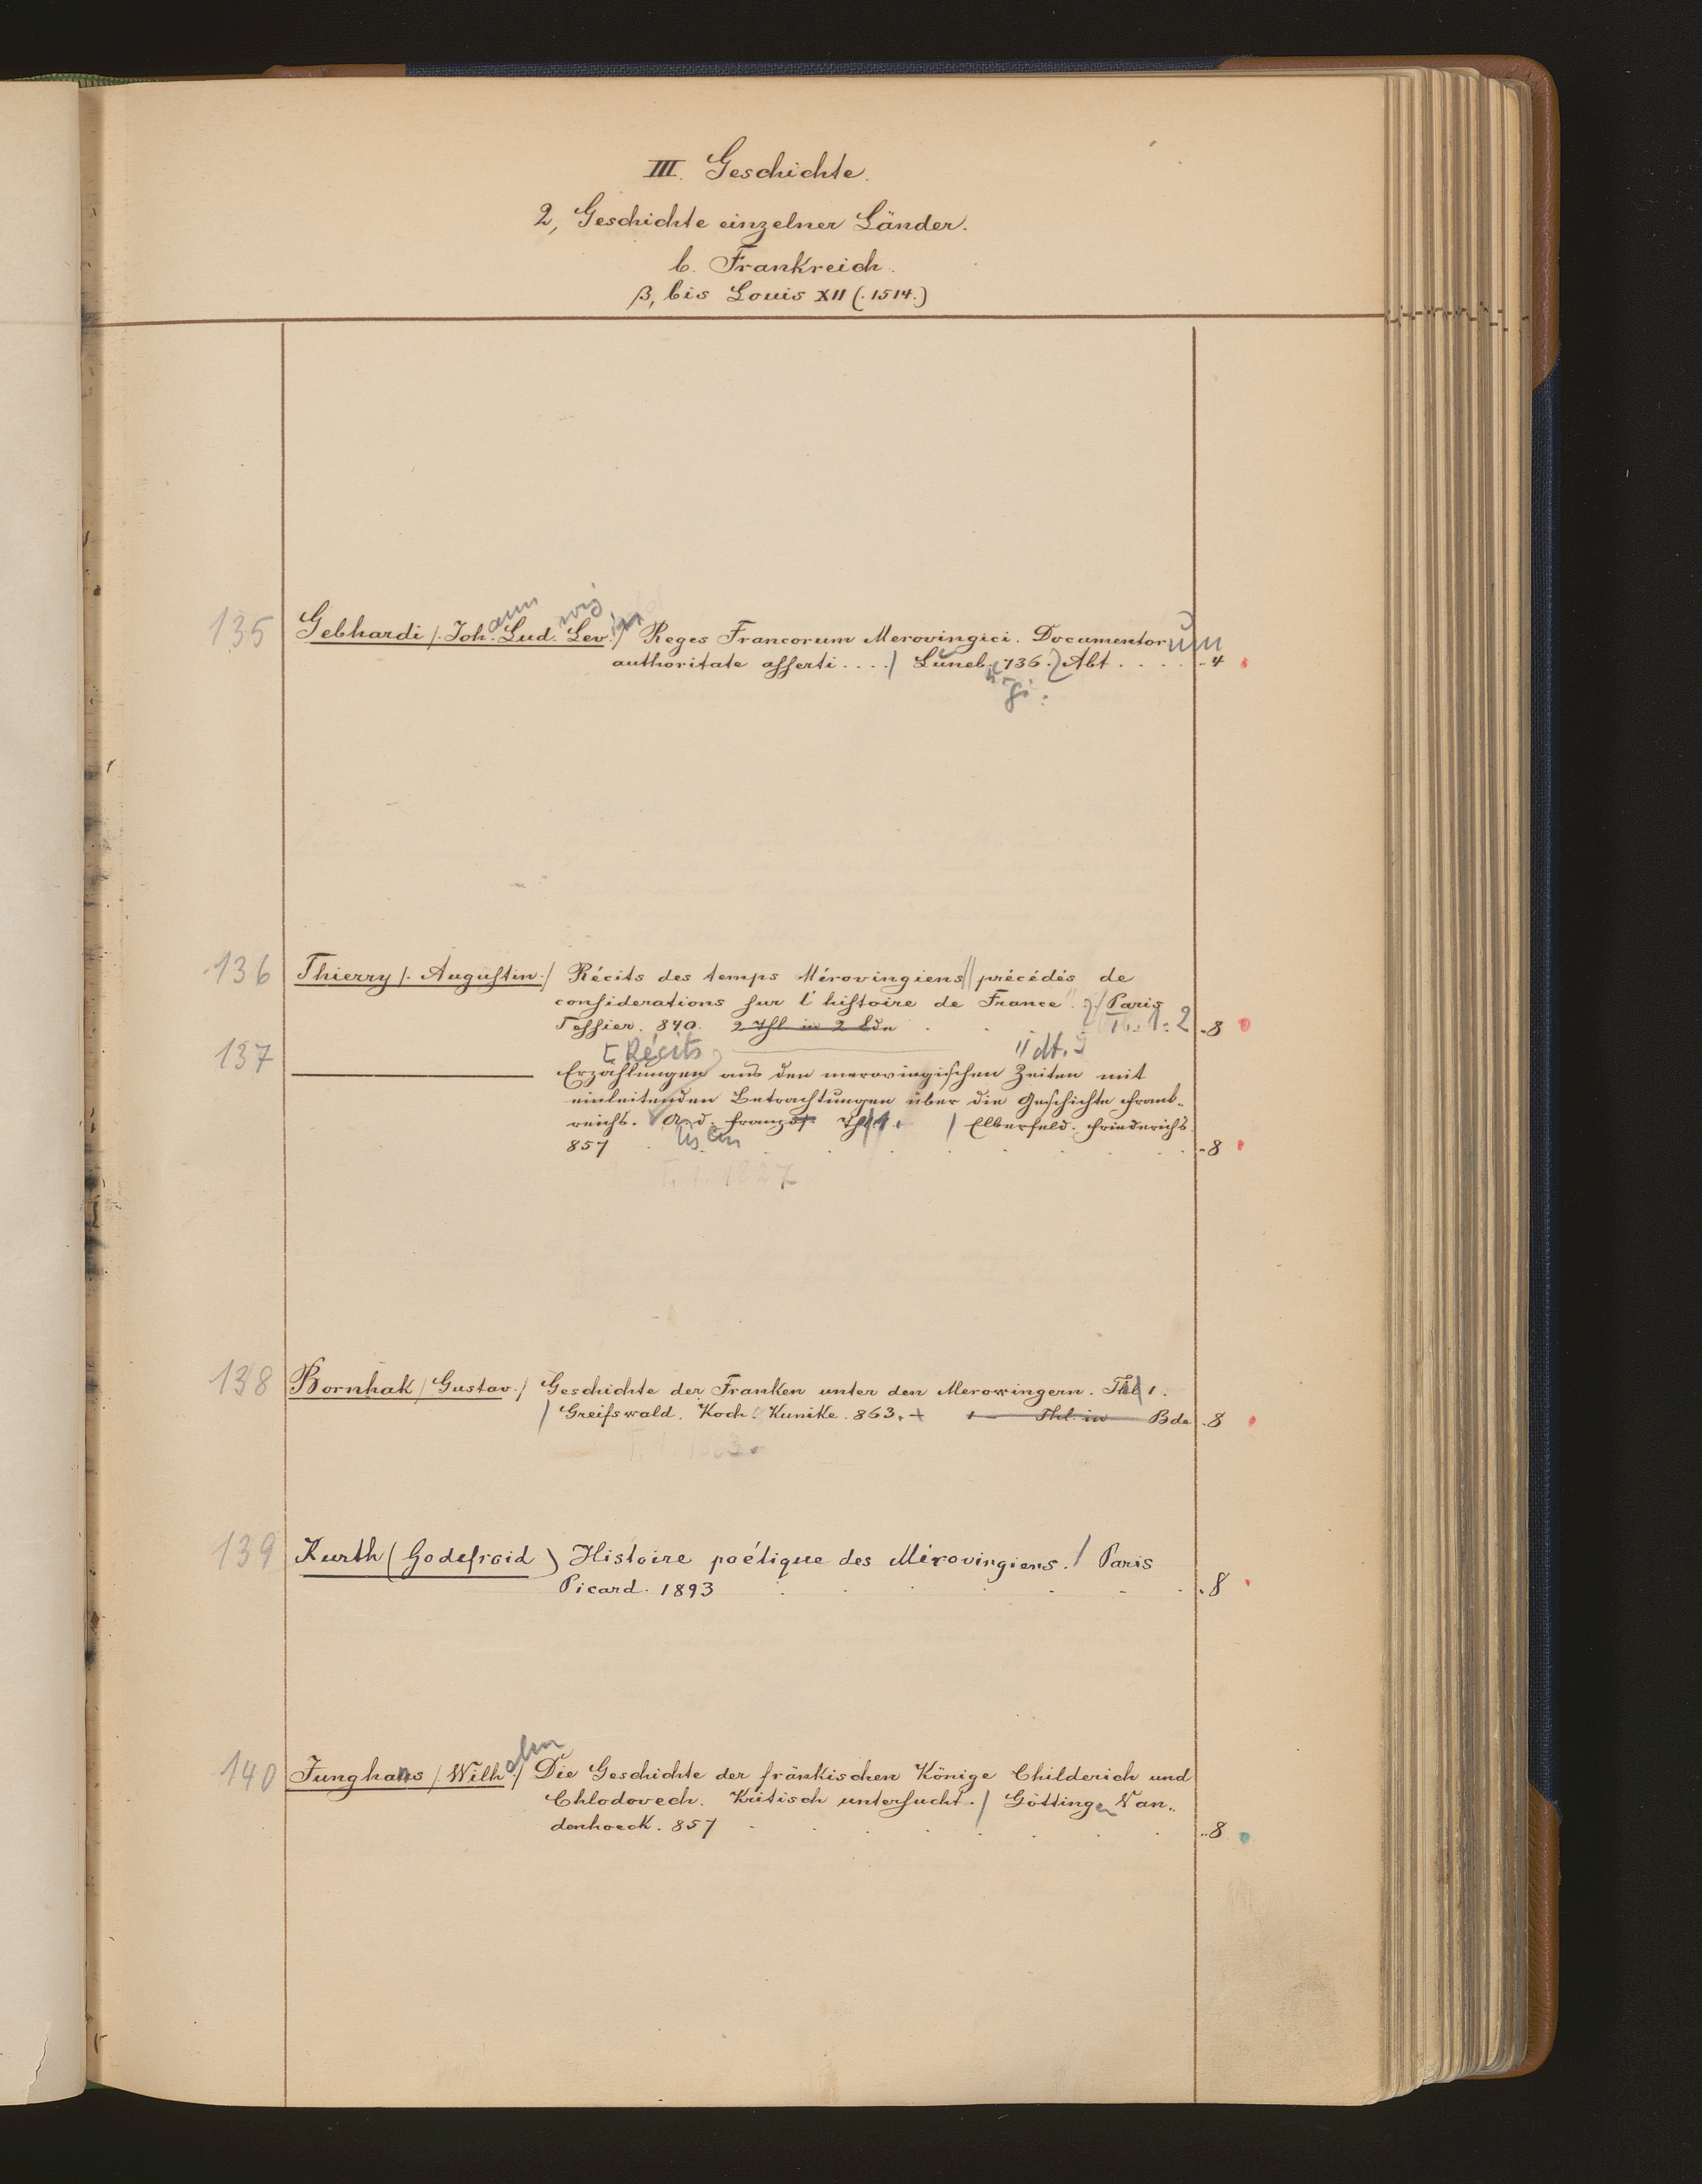 III. Geschichte.
2, Geschichte einzelner Länder.
b. Frankreich.
β, bis Louis XII (.1514.)
135 Gebhardi /. Joh.ann Lud.wig Lev.in /. Reges Francorum Merovingici. Documentorum
authoritate asserti..../ Lüneb. 736. Abt.....4
urgi:
136 Thierry /. Augustin./ Récits des temps Mérovingiens// précédés de
considerations sur l'histoire de France". / Paris
Tessier. 840. 2 Thl in 2 Bdn . . 1. 2 .8
[: Récits dt. :]
137 Erzählungen aus den merovingischen Zeiten mit
einleitenden Betrachtungen über die Geschichte Frank„
reichs. A. d. französ. Thl 1. + / Elberfeld. Friederichs
857 . . . . . . .8
T. 1. 1827
138 Bornhak / Gustav. / Geschichte der Franken unter den Merowingern. Thl 1.
/ Greifswald. Koch. Kunike. 863. + 1 — Thl. in Bde .8
T. 1. 1863.
139 Kurth (Godefroid) Histoire poétique des Mérovingiens. / Paris
Picard. 1893 . . . . . . .8
140 Junghans /. Wilhelm / Die Geschichte der fränkischen Könige Childerich und
Chlodovech. Kritisch untersucht. / Göttingen Van„
denhoeck. 857 . . . . . . . ..8